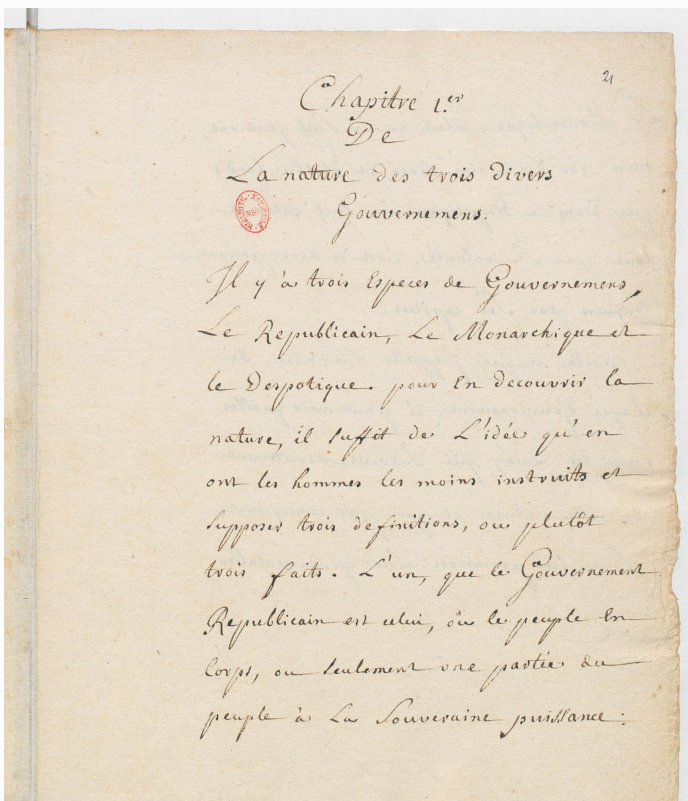 21
Chapitre 1.er
De
La nature des trois divers
Gouvernemens.
Il y'a trois Especes de Gouvernemens,
Le Republicain, Le Monarchique et
le Despotique. pour En decouvrir la
nature, il suffit de L'idée qu'en
ont les hommes les moins instruits et
supposer trois definitions, ou plutôt
trois faits. L'un, que le Gouvernement
Republicain est celui, où le peuple En
Corps, ou seulement une partie du
peuple à La Souveraine puissance: